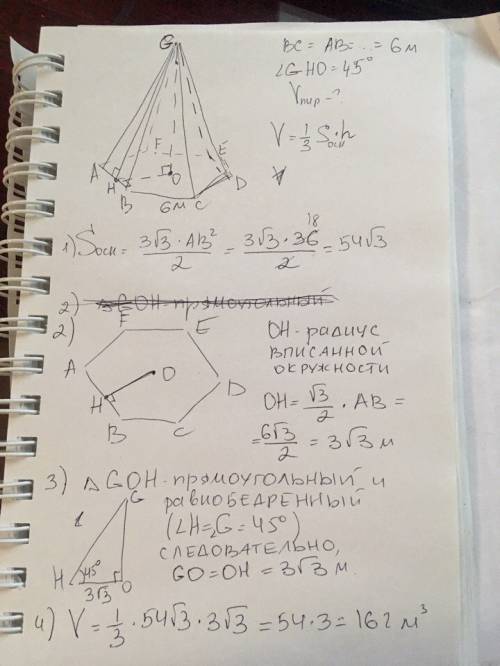 G
BC = AB = .. = 6 м
∠GHO = 45°
Vпир - ?
V = 1/3 Sосн · h
F E
A H O D
B 6м C
1) Sосн = 3√3 · AB² / 2 = 3√3 · 36 18 / 2 = 54√3
2) △GOH - прямоугольный
2)
F E
A O D
H
B C
OH - радиус
вписанной
окружности
OH = √3/2 · AB =
= 6√3/2 = 3√3 м
3) △GOH - прямоугольный и
равнобедренный
(∠H = ∠G = 45°)
следовательно,
GO = OH = 3√3 м.
G
H 45° O
3√3
4) V = 1/3 · 54√3 · 3√3 = 54 · 3 = 162 м³